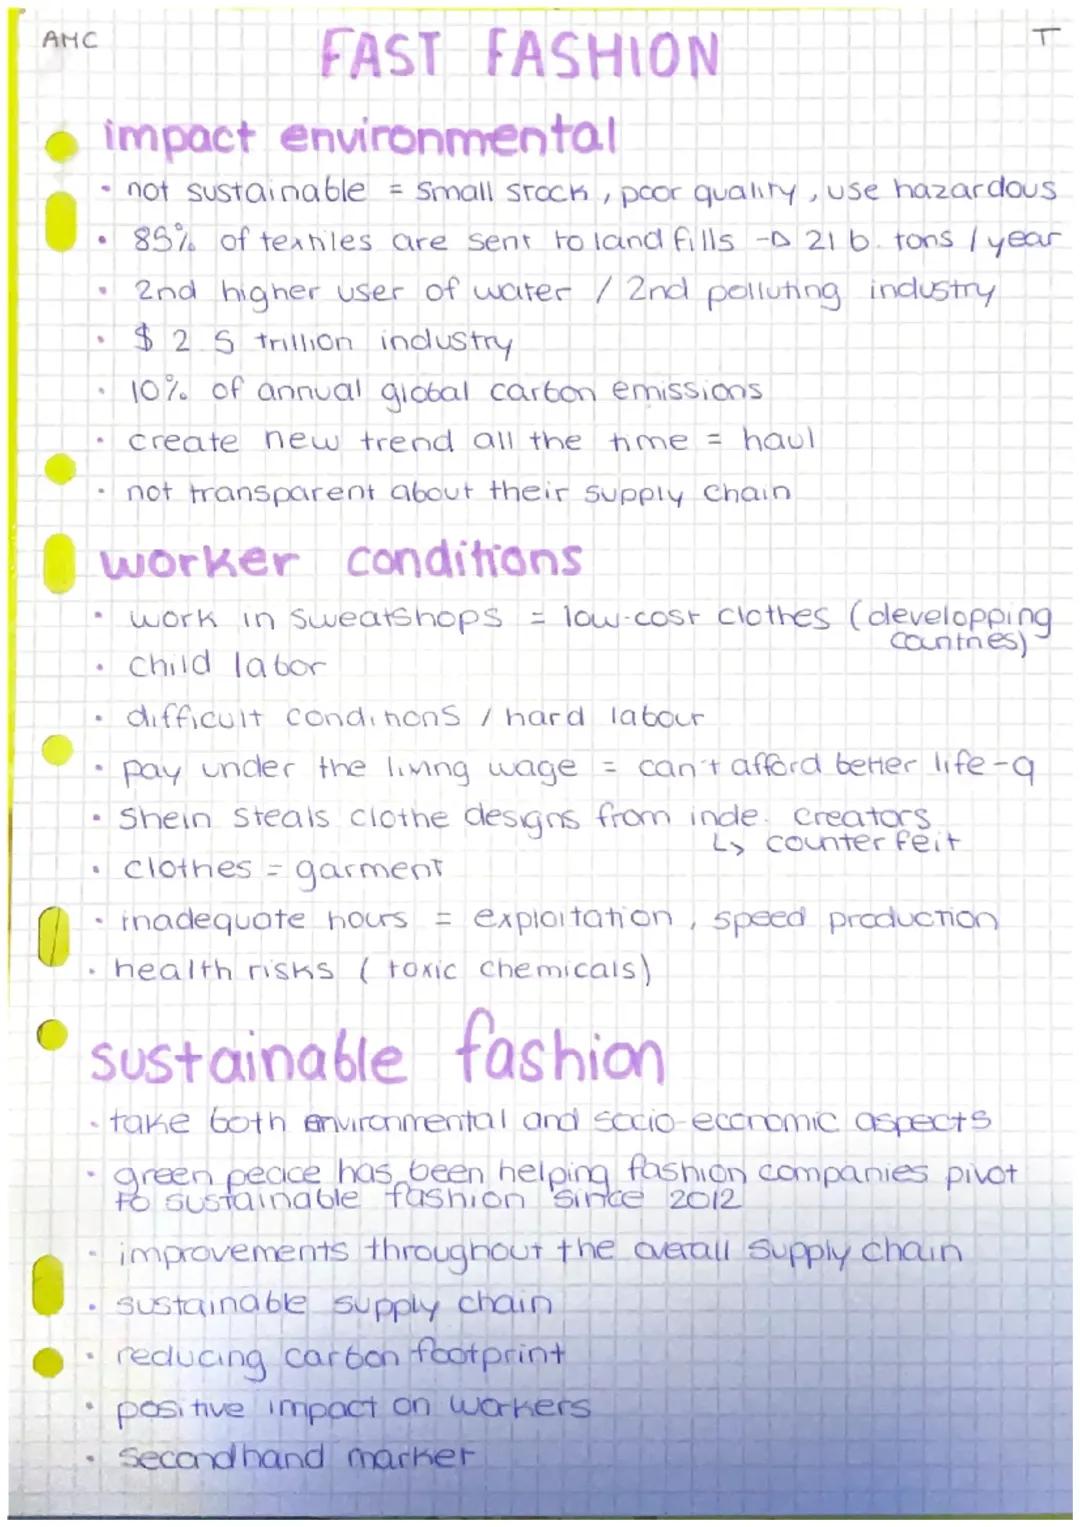 AMC
FAST FASHION
T
impact environmental
• not sustainable = small stock, poor quality, use hazardous
• 85% of textiles are sent to landfills → 21 b. tons / year
• 2nd higher user of water / 2nd polluting industry
• $ 2.5 trillion industry
• 10% of annual global carbon emissions
• create new trend all the time = haul
• not transparent about their supply chain
worker conditions
• work in sweatshops = low-cost clothes (developping
countries)
• child labor
• difficult conditions / hard labour
• pay under the living wage = can't afford better life-q
• Shein steals clothe designs from inde. creators
↳ counterfeit
• clothes = garment
• inadequate hours = exploitation, speed production
• health risks (toxic chemicals)
sustainable fashion
• take both environmental and socio-economic aspects
• green peace has been helping fashion companies pivot
to sustainable fashion since 2012
• improvements throughout the overall supply chain
• sustainable supply chain
• reducing carbon footprint
• positive impact on workers
• secondhand market